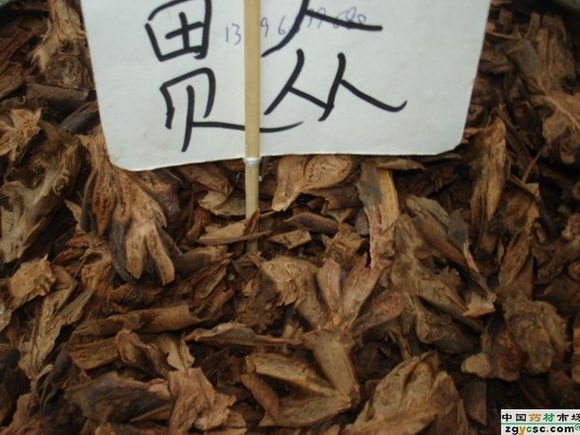 贯众
中国药材市场
zgycsc.com